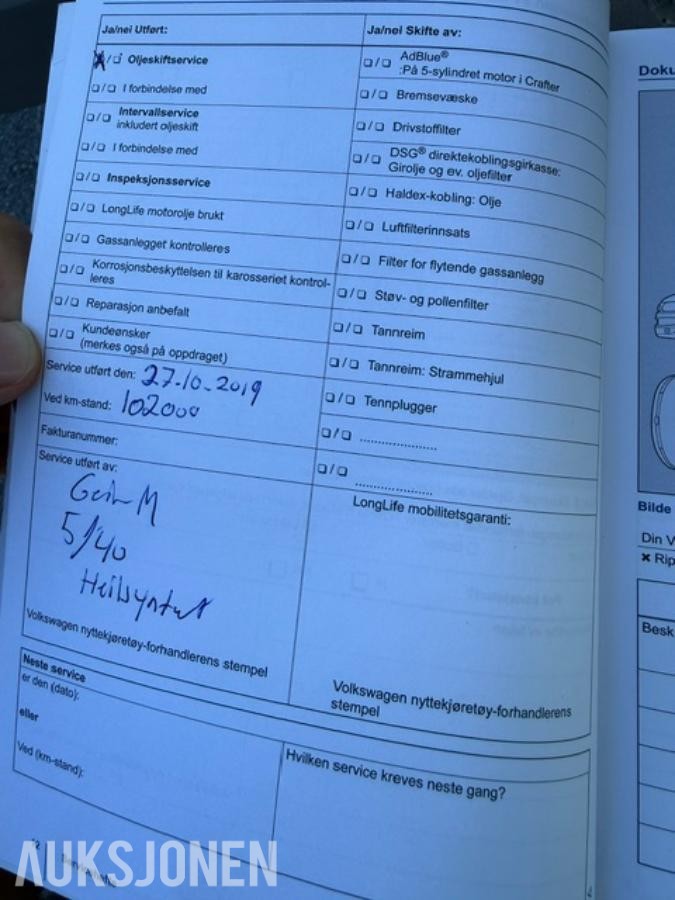 Ja/nei Utført:
Oljeskiftservice
I forbindelse med
Intervallservice
inkludert oljeskift
I forbindelse med
Inspeksjonsservice
LongLife motorolje brukt
Gassanlegget kontrolleres
Korrosjonsbeskyttelsen til karosseriet kontrol-
leres
Reparasjon anbefalt
Kundeønsker
(merkes også på oppdraget)
Service utført den: 27.10.2019
Ved km-stand: 102000
Fakturanummer:
Service utført av:
Geir M
5/40
Heilsyntet
Volkswagen nyttekjøretøy-forhandlerens stempel
Ja/nei Skifte av:
AdBlue®
:På 5-sylindret motor i Crafter
Bremsevæske
Drivstoffilter
DSG® direktekoblingsgirkasse:
Girolje og ev. oljefilter
Haldex-kobling: Olje
Luftfilterinnsats
Filter for flytende gassanlegg
Støv- og pollenfilter
Tannreim
Tannreim: Strammehjul
Tennplugger
LongLife mobilitetsgaranti:
Volkswagen nyttekjøretøy-forhandlerens
stempel
Neste service
er den (dato):
eller
Ved (km-stand):
Hvilken service kreves neste gang?
Doku
Bilde
Din V
✖ Rip
Besk
AUKSJONEN